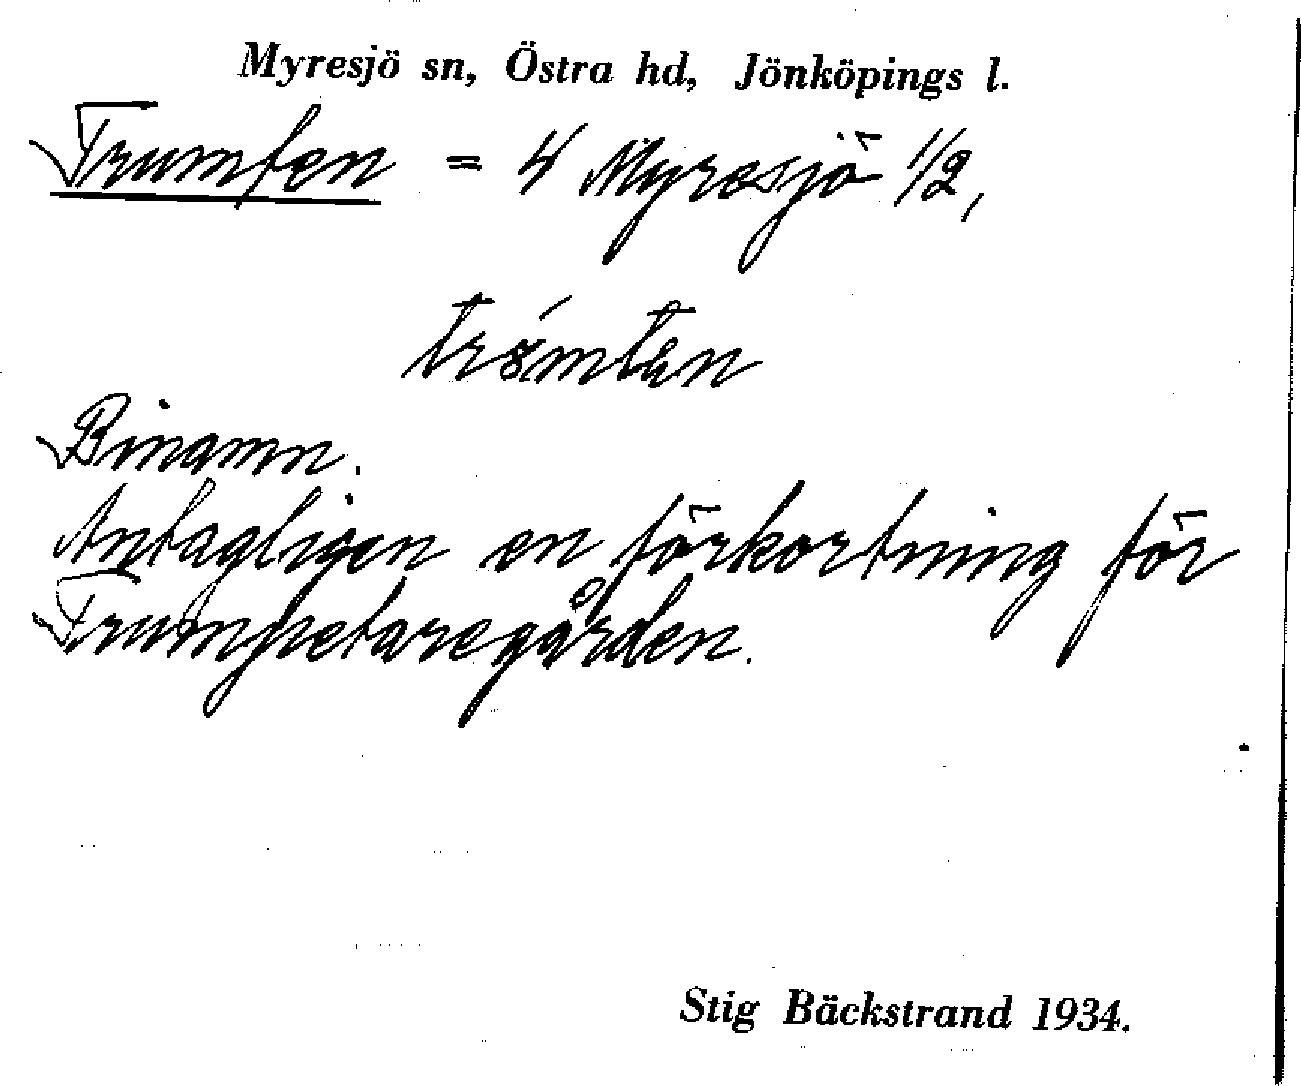 Myresjö sn, Östra hd, Jönköpings l.
Trumfen = 4 Myresjö 1/2,
Binamn.
Antagligen en förkortning för
Trumpetaregården.
Stig Bäckstrand 1934.